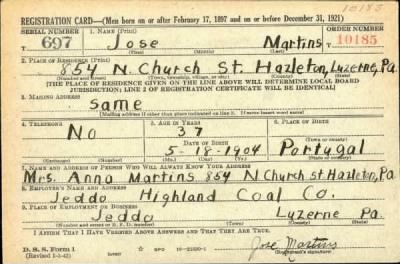 10185
REGISTRATION CARD—(Men born on or after February 17, 1897 and on or before December 31, 1921)
SERIAL NUMBER 1. NAME (Print) ORDER NUMBER
T 697 Jose Martins T 10185
(First) (Middle) (Last)
2. PLACE OF RESIDENCE (Print)
854 N Church St. Hazleton, Luzerne, Pa.
(Number and street) (Town, township, village, or city) (County) (State)
[THE PLACE OF RESIDENCE GIVEN ON THE LINE ABOVE WILL DETERMINE LOCAL BOARD
JURISDICTION; LINE 2 OF REGISTRATION CERTIFICATE WILL BE IDENTICAL]
3. MAILING ADDRESS
Same
[Mailing address if other than place indicated on line 2. If same insert word same]
4. TELEPHONE 5. AGE IN YEARS 6. PLACE OF BIRTH
No 37
DATE OF BIRTH (Town or county)
5-18-1904 Portugal
(Exchange) (Number) (Mo.) (Day) (Yr.) (State or country)
7. NAME AND ADDRESS OF PERSON WHO WILL ALWAYS KNOW YOUR ADDRESS
Mrs. Anna Martins 854 N Church st. Hazleton, Pa.
8. EMPLOYER'S NAME AND ADDRESS
Jeddo Highland Coal Co.
9. PLACE OF EMPLOYMENT OR BUSINESS
Jeddo Luzerne Pa.
(Number and street or R. F. D. number) (Town) (County) (State)
I AFFIRM THAT I HAVE VERIFIED ABOVE ANSWERS AND THAT THEY ARE TRUE.
D. S. S. Form 1
(Revised 1-1-42) (over) GPO 16—21630-1
Jose Martins
(Registrant's signature)